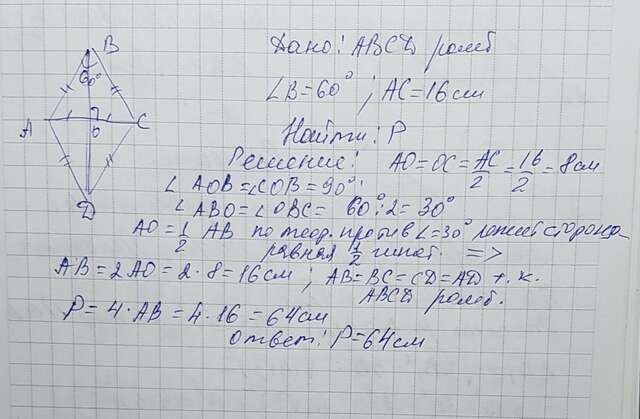 Дано: ABCD ромб
∠B=60°; AC=16см
Найти: P
Решение: AO=OC=AC/2=16/2=8см
∠AOB=∠COB=90°
∠ABO=∠OBC= 60°:2=30°
AO=1/2 AB по теор. против ∠=30° лежит сторона
равная 1/2 гипот. =>
AB=2AO=2·8=16см; AB=BC=CD=AD т.к.
ABCD ромб.
P=4·AB=4·16=64см
Ответ: P=64см
B
60°
A
O
C
D